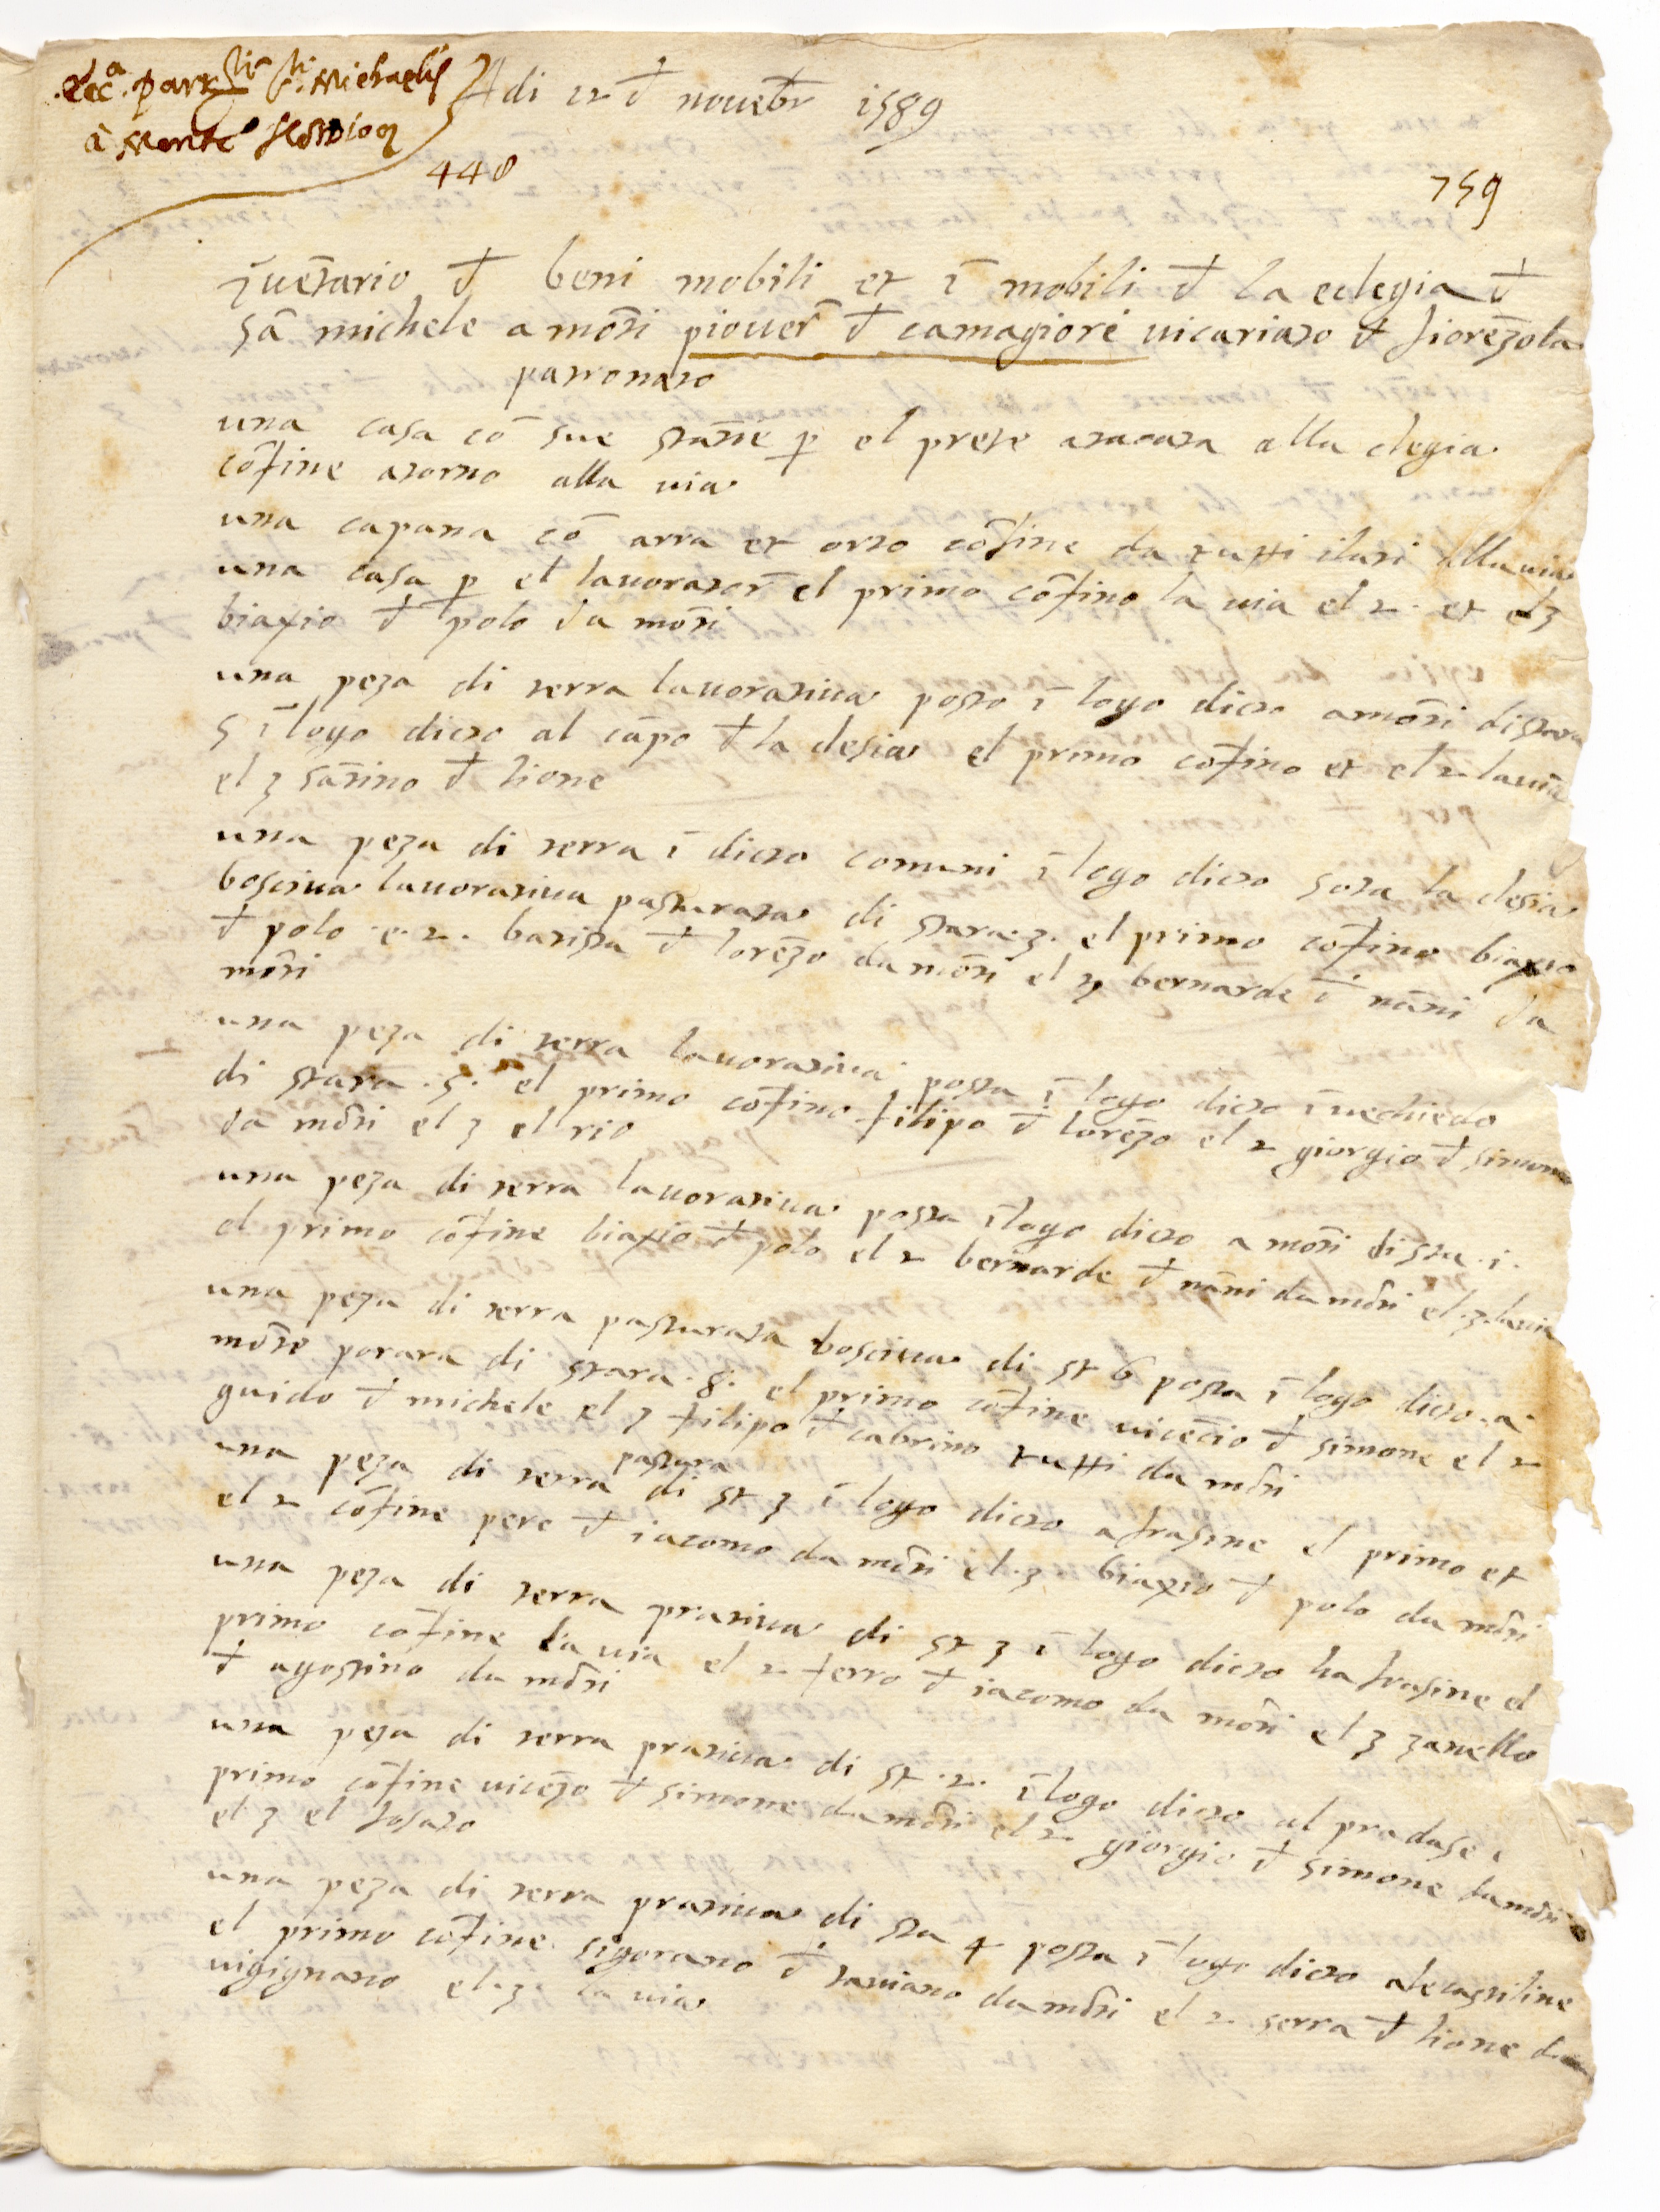 Adi 22 đ novēbr 1589
à Monte
440
759
īuētario đ beni mobili et ī mobili đ la eclegia đ
sā michele a mōti piover̄ đ camagiore vicariato đ fiorēzola
patronato
una casa cō sue stātie p el prete atacata alla clegia
cōfine atorno alla via
una capana cō arra et orto cōfine da tutti ilati alla via
una casa p el lavorator̄ el primo cōfino la via el 2. et el 3
biaxio đ polo da mōti
una peza di terra lavorativa posto ī logo dicto a mōti di stara
5 ī logo dicto al cāpo đ la clesia el primo cōfino et el 2 la via
el 3 sātino đ lione
una peza di terra ī dicto comuni ī logo dicto sota la clesia
bosciva lavorativa pasturata di stara .3. el primo cōfino biaxio
đ polo .e. 2. batista đ lorēzo da mōti el 3 bernarde ī nāni da
mōti
una peza di terra lavorativa posta ī logo dicto ī vechiedo
di stara .5. el primo cōfino filipo đ lorēzo el 2 giorgio đ simone
da mōti el 3 el rio
una peza di terra lavorativa posta ī logo dicto a mōti di sta .i.
el primo cōfine biaxio đ polo el 2 bernarde đ nāni da mōti el .3. la via
una peza di terra pasturata bosciva di st 6 posta ī logo dicto .a.
mōte porara di stara .8. el primo cōfine vicēcio đ simone el 2
guido đ michele el 3 filipo đ cabrino tutti da mōti
pastura
una peza di terra di st 3 ī logo dicto a frasine el primo et
el 2 cōfine pero đ iacomo da mōti el .3. biaxio đ polo da mōti
una peza di terra prativa di st 3 ī logo dicto ha frasine el
primo cōfine la via el 2 ferro đ iacomo da mōti el 3 zanello
đ agostino da mōti
una peza di terra prativa di st .2. ī logo dicto al pradase
primo cōfine vicēzo đ simone da mōti el 2 giorgio đ simone da mōti
el 3 el fosato
una peza di terra prativa di sta 4 posta ī logo dicto ale castiline
el primo cōfine sigorano đ taviano da mōti el 2 serra đ lione da
vigignano el .3. la via